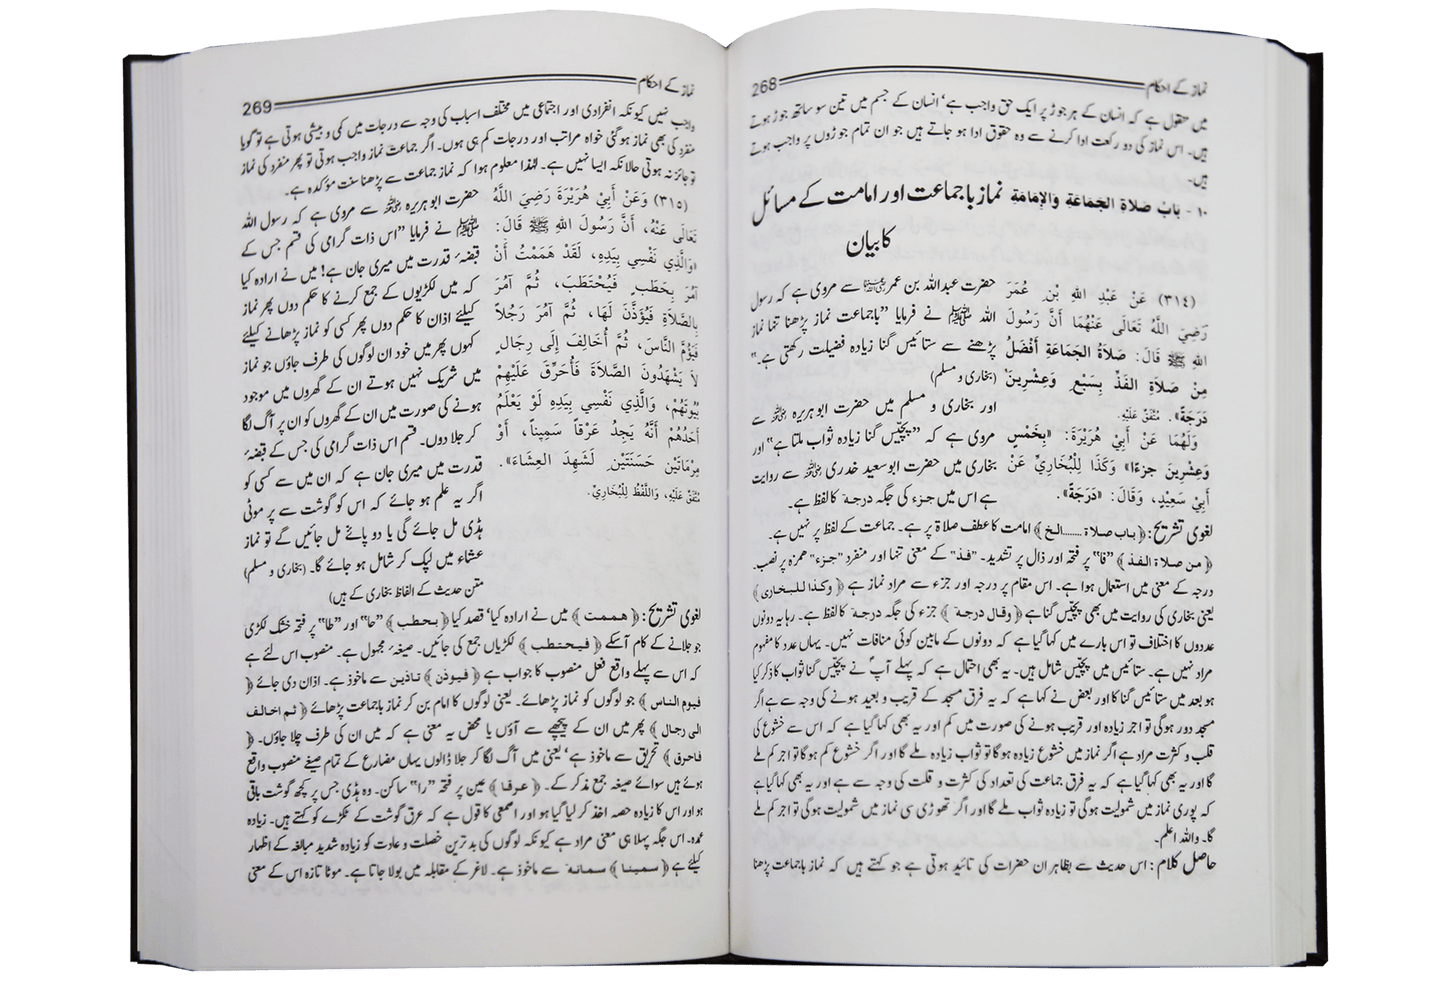 نماز کے احکام 268
میں حقول ہے کہ انسان کے ہر جوڑ پر ایک حق واجب ہے' انسان کے جسم میں تین سو ساٹھ جوڑ ہوتے
ہیں۔ اس نماز کی دو رکعت ادا کرنے سے وہ حقوق ادا ہو جاتے ہیں جو ان تمام جوڑوں پر واجب ہوتے
ہیں۔
١٠ - بَابُ صَلَاةِ الجَمَاعَةِ وَالإِمَامَةِ نماز باجماعت اور امامت کے مسائل
کا بیان
(٣١٤) عَنْ عَبْدِ اللهِ بْنِ عُمَرَ
رَضِيَ اللَّهُ تَعَالَى عَنْهُمَا أَنَّ رَسُولَ
اللهِ ﷺ قَالَ: صَلَاةُ الجَمَاعَةِ أَفْضَلُ
مِنْ صَلَاةِ الفَذِّ بِسَبْعٍ وَعِشْرِينَ
دَرَجَةً». مُتَّفَقٌ عَلَيْهِ.
وَلَهُمَا عَنْ أَبِي هُرَيْرَةَ: «بِخَمْسٍ
وَعِشْرِينَ جزءًا» وَكَذَا لِلْبُخَارِيِّ عَنْ
أَبِي سَعِيدٍ، وَقَالَ: «دَرَجَةً».
حضرت عبداللہ بن عمر رضی اللہ عنہما سے مروی ہے کہ رسول
اللہ ﷺ نے فرمایا ”باجماعت نماز پڑھنا تنہا نماز
پڑھنے سے ستائیس گنا زیادہ فضیلت رکھتی ہے۔“
(بخاری و مسلم)
اور بخاری و مسلم میں حضرت ابو ہریرہ رضی اللہ عنہ سے
مروی ہے کہ ”پچیس گنا زیادہ ثواب ملتا ہے“ اور
بخاری میں حضرت ابوسعید خدری رضی اللہ عنہ سے روایت
ہے اس میں جزء کی جگہ درجة کا لفظ ہے۔
لغوی تشریح: ﴿ باب صلاة ........الخ ﴾ امامت کا عطف صلاة پر ہے۔ جماعت کے لفظ پر نہیں ہے۔
﴿ من صلاة الفذ ﴾ ”فا“ پر فتحہ اور ذال پر تشدید۔ ”فذ“ کے معنی تنہا اور منفرد ”جزء“ ہمزہ پر نصب۔
درجہ کے معنی میں استعمال ہوا ہے۔ اس مقام پر درجہ اور جزء سے مراد نماز ہے ﴿ وكذا للبخارى ﴾
یعنی بخاری کی روایت میں بھی پچیس گنا ہے ﴿ وقال درجة ﴾ جزء کی جگہ درجة کا لفظ ہے۔ رہا یہ دونوں
عددوں کا اختلاف تو اس بارے میں کہا گیا ہے کہ دونوں کے مابین کوئی منافات نہیں۔ یہاں عدد کا مفہوم
مراد نہیں ہے۔ ستائیس میں پچیس شامل ہیں۔ یہ بھی احتمال ہے کہ پہلے آپ نے پچیس گنا ثواب کا ذکر کیا
ہو بعد میں ستائیس گنا کا اور بعض نے کہا ہے کہ یہ فرق مسجد کے قریب و بعید ہونے کی وجہ سے ہے اگر
مسجد دور ہوگی تو اجر زیادہ اور قریب ہونے کی صورت میں کم اور یہ بھی کہا گیا ہے کہ اس سے خشوع کی
قلب و کثرت مراد ہے اگر نماز میں خشوع زیادہ ہوگا تو ثواب زیادہ ملے گا اور اگر خشوع کم ہوگا تو اجر کم ملے
گا اور یہ بھی کہا گیا ہے کہ یہ فرق جماعت کی تعداد کی کثرت و قلت کی وجہ سے ہے اور یہ بھی کہا گیا ہے
کہ پوری نماز میں شمولیت ہوگی تو زیادہ ثواب ملے گا اور اگر تھوڑی سی نماز میں شمولیت ہوگی تو اجر کم ملے
گا۔ واللہ اعلم۔
حاصل کلام: اس حدیث سے بظاہر ان حضرات کی تائید ہوتی ہے جو کہتے ہیں کہ نماز باجماعت پڑھنا
نماز کے احکام 269
واجب نہیں کیونکہ انفرادی اور اجتماعی میں مختلف اسباب کی وجہ سے درجات میں کمی و بیشی ہوتی ہے تو گویا
منفرد کی بھی نماز ہوگئی خواہ مراتب اور درجات کم ہی ہوں۔ اگر جماعت نماز واجب ہوتی تو پھر منفرد کی نماز
تو جائز نہ ہوتی حالانکہ ایسا نہیں ہے۔ لہٰذا معلوم ہوا کہ نماز جماعت سے پڑھنا سنت مؤکدہ ہے۔
(٣١٥) وَعَنْ أَبِي هُرَيْرَةَ رَضِيَ اللَّهُ
تَعَالَى عَنْهُ، أَنَّ رَسُولَ اللهِ ﷺ قَالَ:
«وَالَّذِي نَفْسِي بِيَدِهِ، لَقَدْ هَمَمْتُ أَنْ
آمُرَ بِحَطَبٍ فَيُحْتَطَبَ، ثُمَّ آمُرَ
بِالصَّلَاةِ فَيُؤَذَّنَ لَهَا، ثُمَّ آمُرَ رَجُلاً
فَيَؤُمَّ النَّاسَ، ثُمَّ أُخَالِفَ إِلَى رِجَالٍ
لَا يَشْهَدُونَ الصَّلَاةَ فَأُحَرِّقَ عَلَيْهِمْ
بُيُوتَهُمْ، وَالَّذِي نَفْسِي بِيَدِهِ لَوْ يَعْلَمُ
أَحَدُهُمْ أَنَّهُ يَجِدُ عَرْقاً سَمِيناً، أَوْ
مِرْمَاتَيْنِ حَسَنَتَيْنِ لَشَهِدَ العِشَاءَ».
مُتَّفَقٌ عَلَيْهِ، وَاللَّفْظُ لِلْبُخَارِيِّ.
حضرت ابو ہریرہ رضی اللہ عنہ سے مروی ہے کہ رسول اللہ
ﷺ نے فرمایا ”اس ذات گرامی کی قسم جس کے
قبضہ قدرت میں میری جان ہے! میں نے ارادہ کیا
کہ میں لکڑیوں کے جمع کرنے کا حکم دوں پھر نماز
کیلئے اذان کا حکم دوں پھر کسی کو نماز پڑھانے کیلئے
کہوں پھر میں خود ان لوگوں کی طرف جاؤں جو نماز
میں شریک نہیں ہوتے ان کے گھروں میں موجود
ہونے کی صورت میں ان کے گھروں کو ان پر آگ لگا
کر جلا دوں۔ قسم اس ذات گرامی کی جس کے قبضہ
قدرت میں میری جان ہے کہ ان میں سے کسی کو
اگر یہ علم ہو جائے کہ اس کو گوشت سے پر موٹی
ہڈی مل جائے گی یا دو پائے مل جائیں گے تو نماز
عشاء میں لپک کر شامل ہو جائے گا۔ (بخاری و مسلم)
متن حدیث کے الفاظ بخاری کے ہیں)
لغوی تشریح: ﴿ هممت ﴾ میں نے ارادہ کیا' قصد کیا ﴿ بحطب ﴾ ”حا“ اور ”طا“ پر فتحہ خشک لکڑی
جو جلانے کے کام آسکے ﴿ فيحتطب ﴾ لکڑیاں جمع کی جائیں۔ صیغہ مجہول ہے۔ منصوب اس لئے ہے
کہ اس سے پہلے واقع فعل منصوب کا جواب ہے ﴿ فيوذن ﴾ تاذین سے ماخوذ ہے۔ اذان دی جائے ﴿
فيوم الناس ﴾ جو لوگوں کو نماز پڑھائے۔ یعنی لوگوں کا امام بن کر نماز باجماعت پڑھائے ﴿ ثم اخالف
الى رجال ﴾ پھر میں ان کے پیچھے سے آؤں یا محض یہ معنی ہے کہ میں ان کی طرف چلا جاؤں۔ ﴿
فاحرق ﴾ تحریق سے ماخوذ ہے' یعنی میں آگ لگا کر جلا ڈالوں یہاں مضارع کے تمام صیغے منصوب واقع
ہوئے ہیں سوائے صیغہ جمع مذکر کے۔ ﴿ عرقا ﴾ عین پر فتحہ ”را“ ساکن۔ وہ ہڈی جس پر کچھ گوشت باقی
ہو اور اس کا زیادہ حصہ اخذ کر لیا گیا ہو اور اصمعی کا قول ہے کہ عرق گوشت کے ٹکڑے کو کہتے ہیں۔ زیادہ
عمدہ۔ اس جگہ پہلا ہی معنی مراد ہے کیونکہ لوگوں کی بد ترین خصلت و عادت کو زیادہ شدید مبالغہ کے اظہار
کیلئے ہے ﴿ سمينا ﴾ سمانة سے ماخوذ ہے۔ لاغر کے مقابلہ میں بولا جاتا ہے۔ موٹا تازہ اس کے معنی